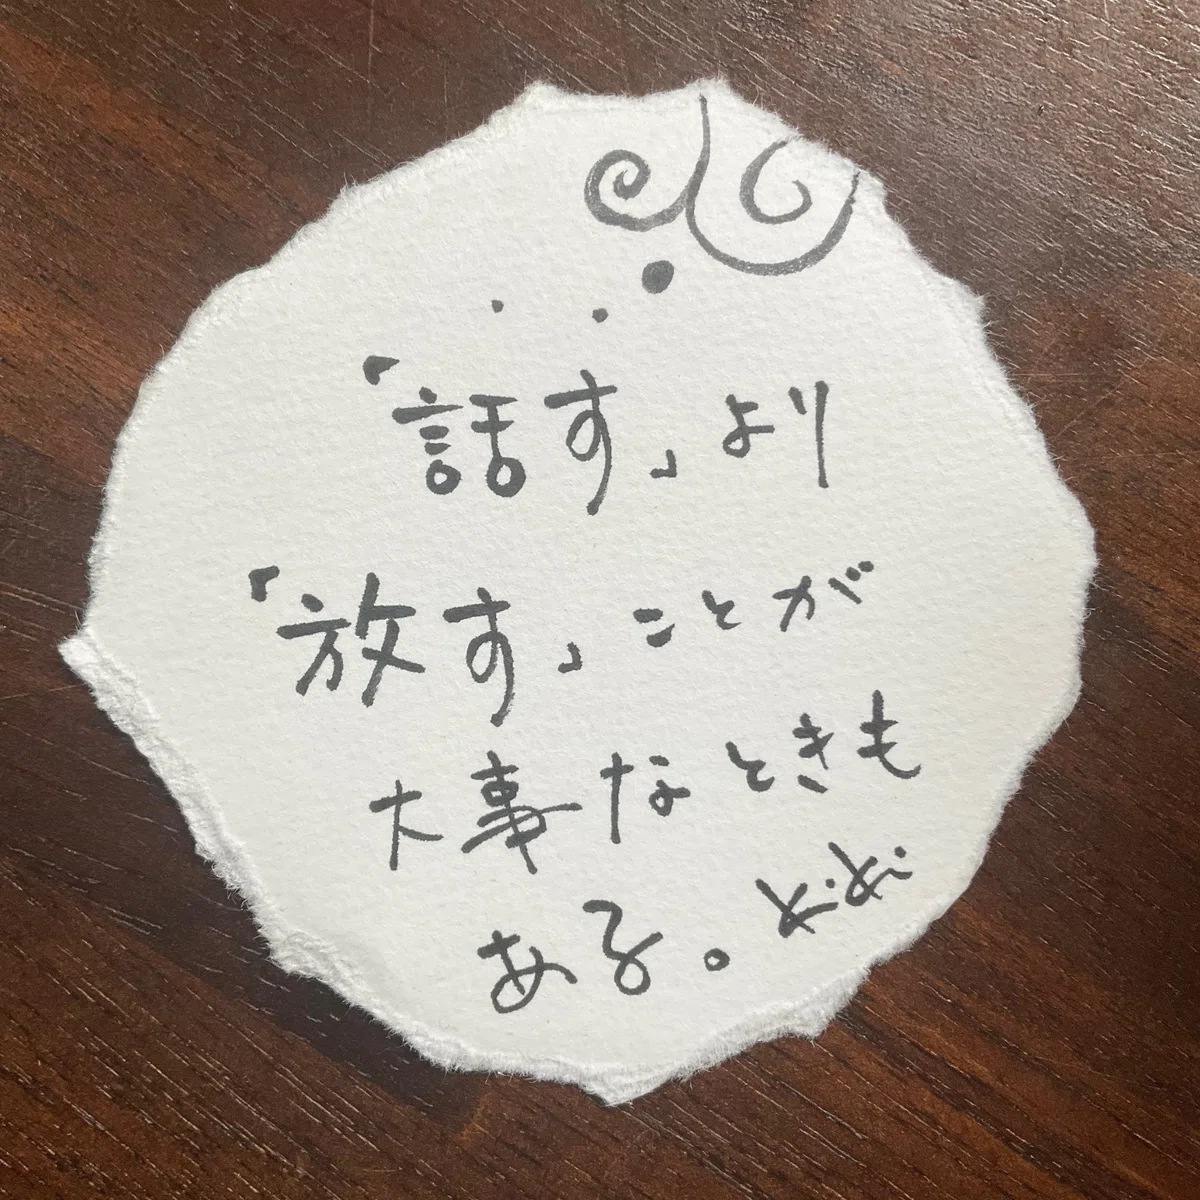 「話す」より
「放す」ことが
大事なときも
ある。kiki